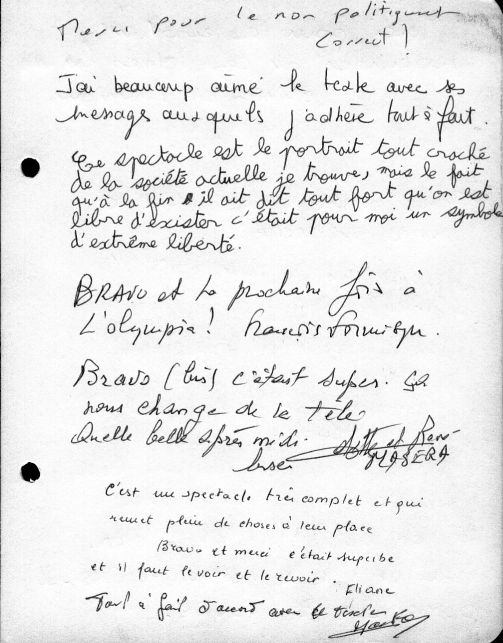 Merci pour le non politiquement
Correct !
J'ai beaucoup aimé le texte avec ses
messages auxquels j'adhère tout à fait.
Ce spectacle est le portrait tout craché
de la société actuelle je trouve, mais le fait
qu'à la fin il ait dit tout fort qu'on est
libre d'exister c'était pour moi un symbole
d'extrême liberté.
BRAVO et la prochaine fois à
L'olympia ! François
Bravo (bis) c'était super. ça
nous change de la télé
Quelle belle après midi.
et René
MASERA
C'est un spectacle très complet et qui
remet plein de choses à leur place
Bravo et merci c'était superbe
et il faut le voir et le revoir.
Eliane
Tout à fait d'accord avec